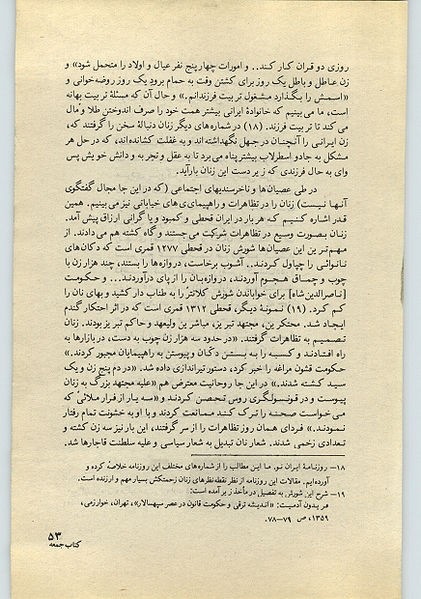 روزی دو قران کار کند.. و امورات چهار پنج نفر عیال و اولاد را متحمل شود» و
زن عاطل و باطل یک روز برای کشتن وقت به حمام برود یک روز روضه‌خوانی و
«اسمش را بگذارد مشغول تربیت فرزندانم.» و حال آن که مسئلهٔ تربیت بهانه
است، ما می‌بینیم که خانوادهٔ ایرانی بیشتر همت خود را صرف اندوختن طلا و مال
می‌کند تا تربیت فرزند. (۱۸) در شماره‌های دیگر زنان دنبالهٔ سخن را گرفتند که،
زن ایرانی را آنچنان در جهل نگهداشته‌اند و به غفلت کشانده‌اند، که در حل هر
مشکل به جادو اسطرلاب بیشتر پناه می‌برد تا به عقل و تجربه و دانش خویش پس
وای به حال فرزندی که زیر دست این زنان بارآید.
در طی عصیان‌ها و ناخرسندیهای اجتماعی (که در این جا مجال گفتگوی
آنها نیست) زنان را در تظاهرات و راهپیمایی‌های خیابانی نیز می‌بینیم. همین
قدر اشاره کنیم که هر بار در ایران قحطی و کمبود و یا گرانی ارزاق پیش آمد.
زنان بصورت وسیع در تظاهرات شرکت می‌جستند و گاه کشته هم می‌دادند. از
مهم‌ترین این عصیان‌ها شورش زنان در قحطی ۱۲۷۷ قمری است که دکان‌های
نانوائی را چپاول کردند.. آشوب برخاست، دروازه‌ها را بستند، چند هزار زن با
چوب و چماق هجوم آوردند، دروازه‌بان را از پای درآوردند... و حکومت
[ناصرالدین‌شاه] برای خواباندن شورش کلانتر را به طناب دار کشید و بهای نان را
کم کرد. (۱۹) نمونهٔ دیگر، قحطی ۱۳۱۲ قمری است که در اثر احتکار گندم
ایجاد شد. محتکرین، مجتهد تبریز، مباشرین ولیعهد و حاکم تبریز بودند. زنان
تصمیم به تظاهرات گرفتند. «در حدود سه هزار زن چوب به دست، در بازارها به
راه افتادند و کسبه را به بستن دکان و پیوستن به راهپیمایان مجبور کردند.»
حکومت قشون مراغه را خبر کرد، دستور تیراندازی داده شد. «در دم پنج زن و یک
سید کشته شدند.» در این جا روحانیت معترض هم «علیه مجتهد بزرگ به زنان
پیوست و در قونسولگری روس تحصن کردند و «سه یار از فرار ملائی که
می‌خواست صحنه را ترک کند ممانعت کردند و با او به خشونت تمام رفتار
نمودند.» فردای همان روز تظاهرات را از سر گرفتند، این بار نیز سه زن کشته و
تعدادی زخمی شدند. شعار نان تبدیل به شعار سیاسی و علیه سلطنت قاجارها شد.
۱۸– روزنامهٔ ایران نو. ما این مطالب را از شماره‌های مختلف این روزنامه خلاصه کرده و
آورده‌ایم. مقالات این روزنامه از نظر نقطه‌نظرهای زنان زحمتکش بسیار مهم و ارزنده است.
۱۹– شرح این شورش به تفصیل در مأخذ زیر آمده است:
فریدون آدمیت: «اندیشه ترقی و حکومت قانون در عصر سپهسالار»، تهران، خوارزمی،
۱۳۵۹، ص ۷۹–۷۸.
۵۳
کتاب جمعه